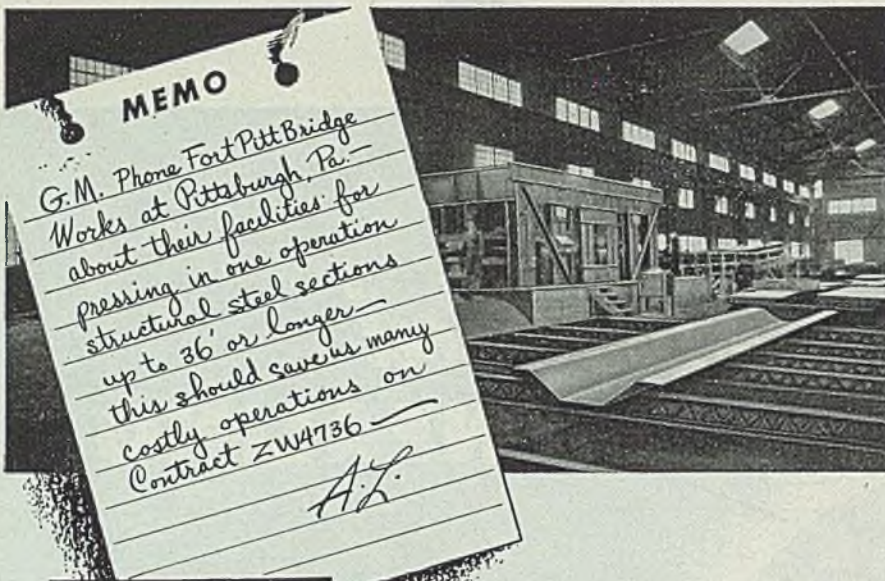 MEMO
G.M. Phone Fort Pitt Bridge
Works at Pittsburgh, Pa.—
about their facilities for
pressing in one operation
structural steel sections
up to 36' or longer—
this should save us many
costly operations on
Contract ZW4736 —
A.L.